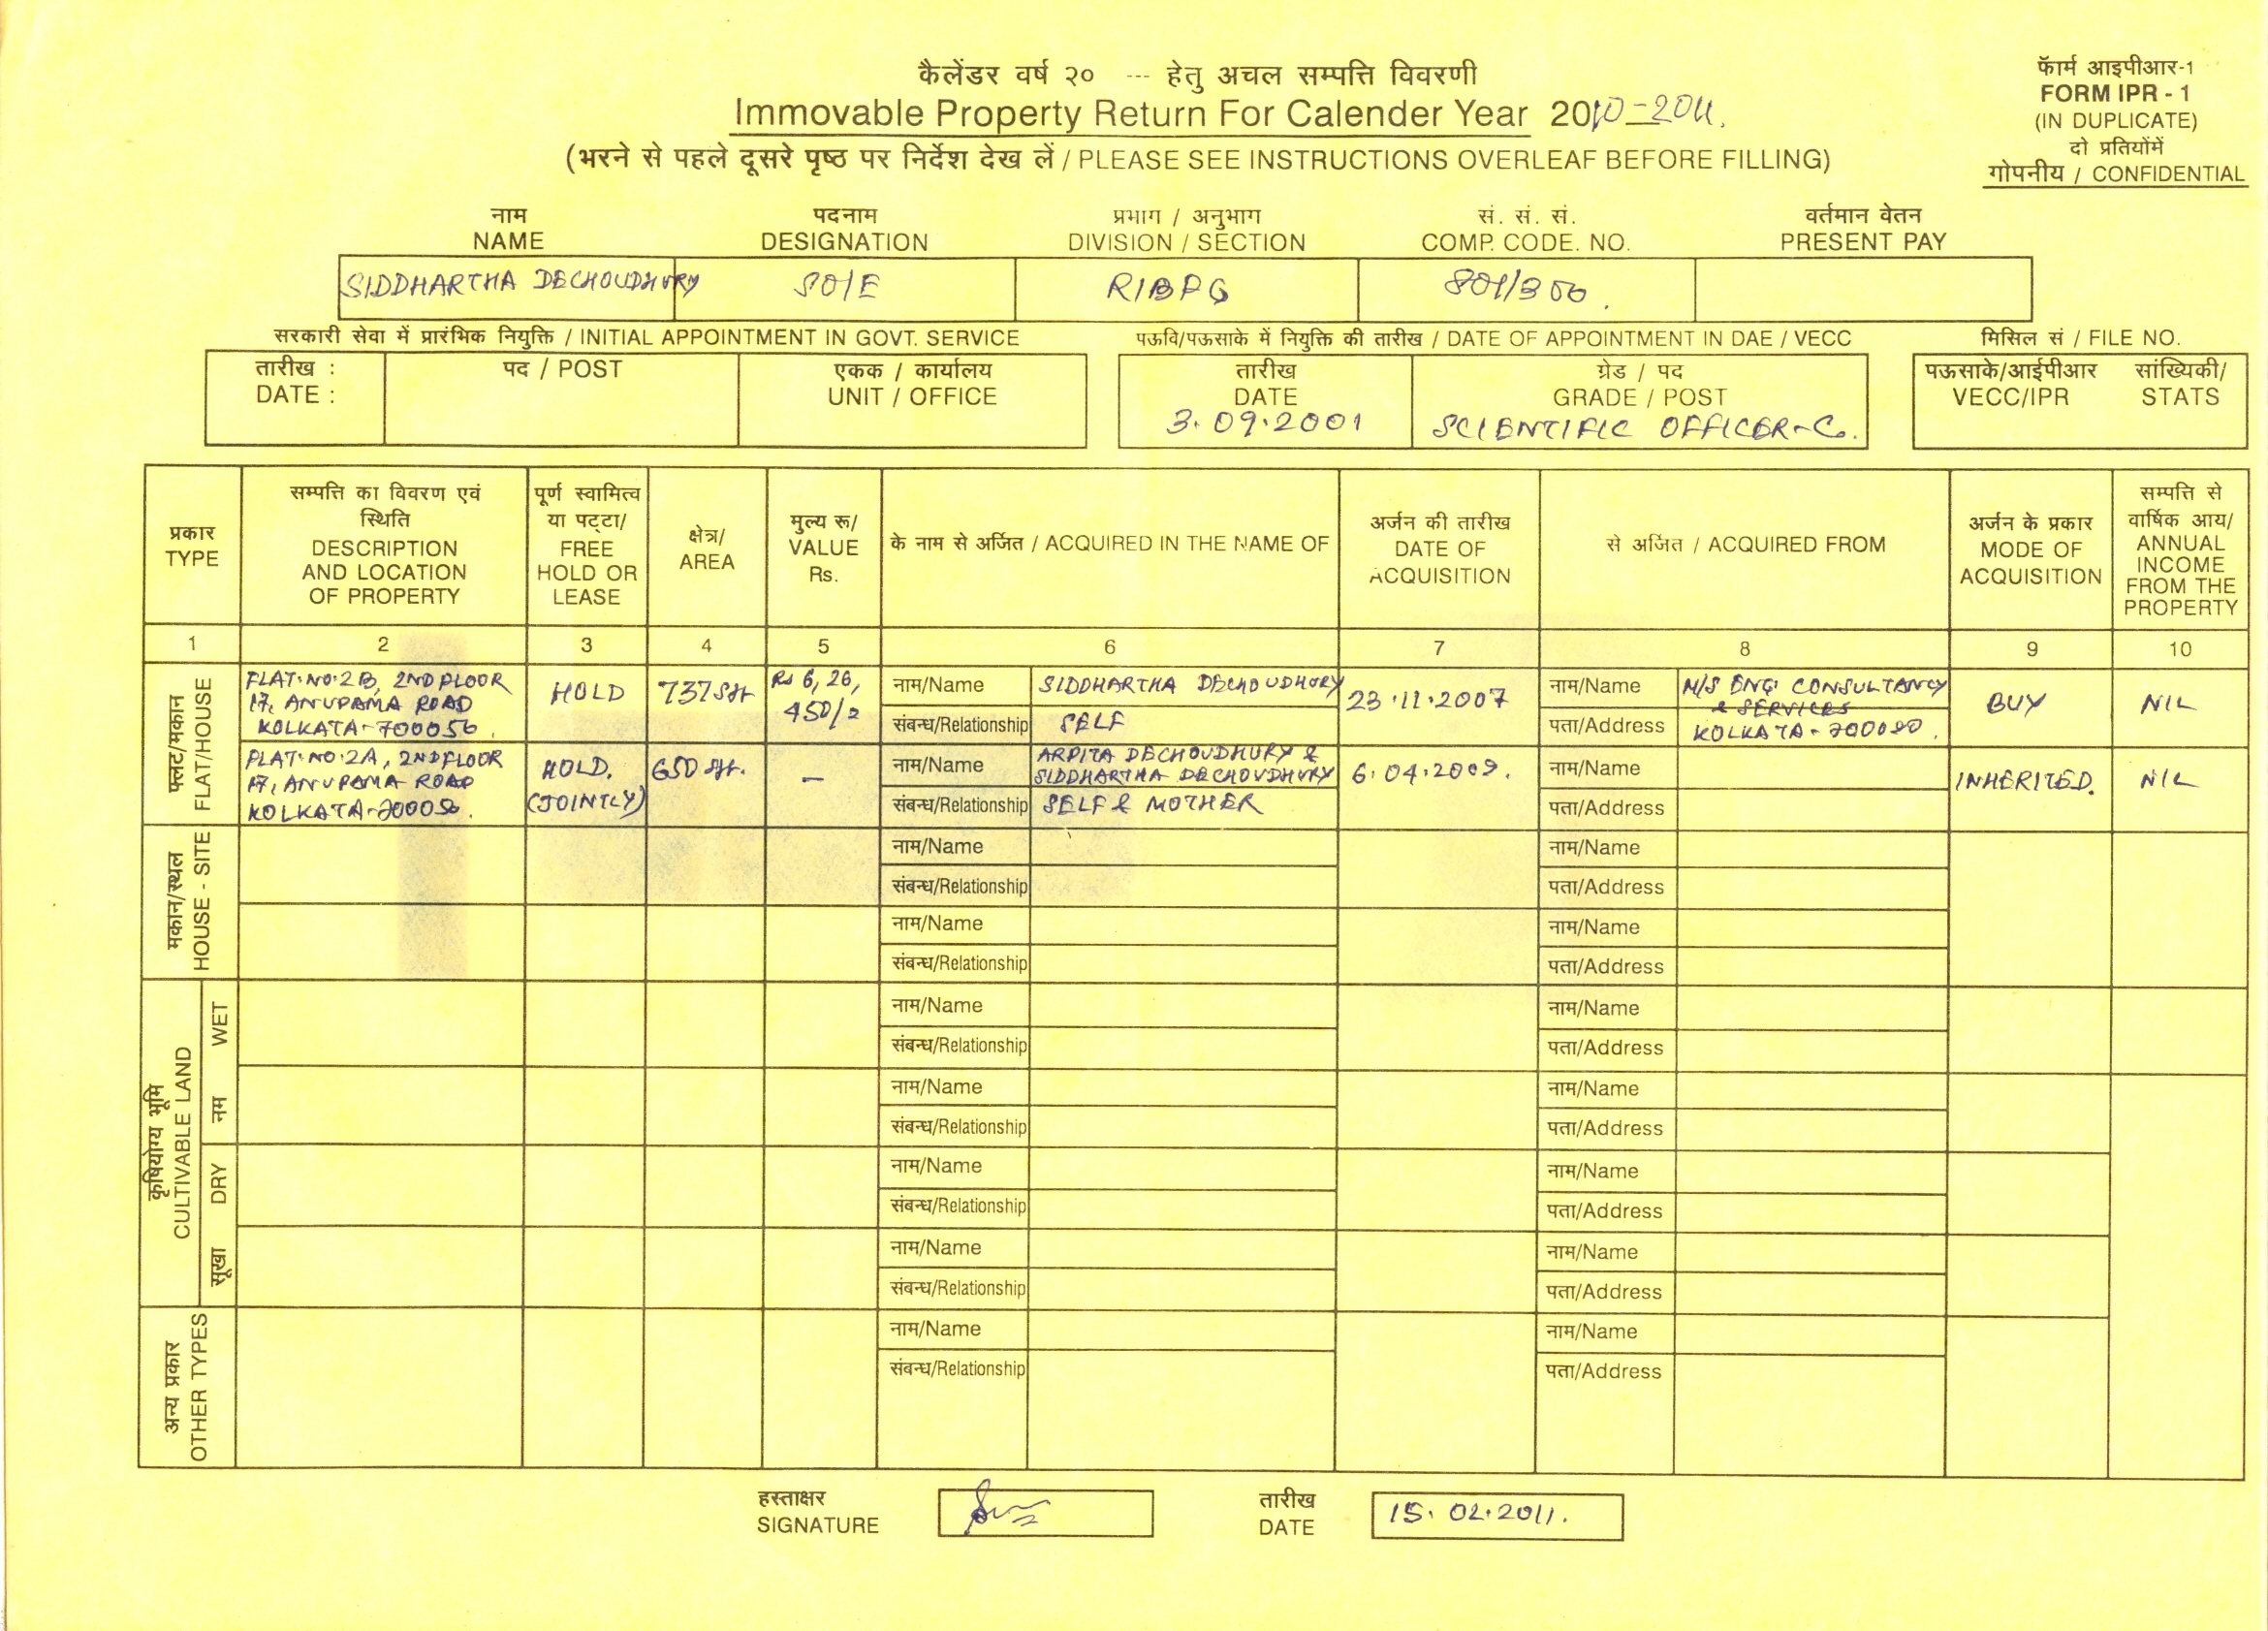 कैलेंडर वर्ष २० --- हेतु अचल सम्पत्ति विवरणी
Immovable Property Return For Calender Year 2010-2011.
(भरने से पहले दूसरे पृष्ठ पर निर्देश देख लें / PLEASE SEE INSTRUCTIONS OVERLEAF BEFORE FILLING)
फॅार्म आइपीआर-1
FORM IPR - 1
(IN DUPLICATE)
दो प्रतियोंमें
गोपनीय / CONFIDENTIAL
नाम पदनाम प्रभाग / अनुभाग सं. सं. सं. वर्तमान वेतन
NAME DESIGNATION DIVISION / SECTION COMP. CODE. NO. PRESENT PAY
SIDDHARTHA DECHOUDHURY SO/E RIBFG 801/300.
सरकारी सेवा में प्रारंभिक नियुक्ति / INITIAL APPOINTMENT IN GOVT. SERVICE पऊवि/पऊसाके में नियुक्ति की तारीख / DATE OF APPOINTMENT IN DAE / VECC मिसिल सं / FILE NO.
तारीख : पद / POST एकक / कार्यालय तारीख ग्रेड / पद पऊसाके/आईपीआर सांख्यिकी/
DATE : UNIT / OFFICE DATE GRADE / POST VECC/IPR STATS
3.09.2001 SCIENTIFIC OFFICER-C.
प्रकार
TYPE
सम्पत्ति का विवरण एवं
स्थिति
DESCRIPTION
AND LOCATION
OF PROPERTY
पूर्ण स्वामित्व
या पट्टा/
FREE
HOLD OR
LEASE
क्षेत्र/
AREA
मुल्य रू/
VALUE
Rs.
के नाम से अर्जित / ACQUIRED IN THE NAME OF
अर्जन की तारीख
DATE OF
ACQUISITION
से अर्जित / ACQUIRED FROM
अर्जन के प्रकार
MODE OF
ACQUISITION
सम्पत्ति से
वार्षिक आय/
ANNUAL
INCOME
FROM THE
PROPERTY
1 2 3 4 5 6 7 8 9 10
फ्लैट/मकान
FLAT/HOUSE
FLAT.NO.2B, 2ND FLOOR
17, ANUPAMA ROAD
KOLKATA-700056.
HOLD
737 Sft
Rs 6,26,
450/=
नाम/Name SIDDHARTHA DECHOUDHURY
संबन्ध/Relationship SELF
23.11.2007
नाम/Name M/S ENG. CONSULTANCY
& SERVICES
पता/Address KOLKATA-700080.
BUY
NIL
FLAT.NO.2A, 2ND FLOOR
17, ANUPAMA ROAD
KOLKATA-700056.
HOLD.
(JOINTLY)
650 sft.
—
नाम/Name ARPITA DECHOUDHURY &
SIDDHARTHA DECHOUDHURY
संबन्ध/Relationship SELF & MOTHER
6.04.2009.
नाम/Name
पता/Address
INHERITED.
NIL
मकान/स्थल
HOUSE - SITE
नाम/Name नाम/Name
संबन्ध/Relationship पता/Address
नाम/Name नाम/Name
संबन्ध/Relationship पता/Address
कृषियोग्य भूमि
CULTIVABLE LAND
नम WET
नाम/Name नाम/Name
संबन्ध/Relationship पता/Address
नाम/Name नाम/Name
संबन्ध/Relationship पता/Address
सूखा DRY
नाम/Name नाम/Name
संबन्ध/Relationship पता/Address
नाम/Name नाम/Name
संबन्ध/Relationship पता/Address
अन्य प्रकार
OTHER TYPES
नाम/Name नाम/Name
संबन्ध/Relationship पता/Address
हस्ताक्षर तारीख
SIGNATURE DATE 15.02.2011.